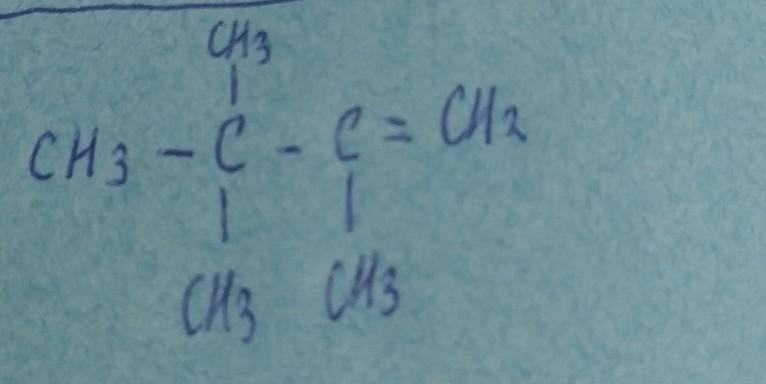 CH3
CH3 - C - C = CH2
CH3 CH3